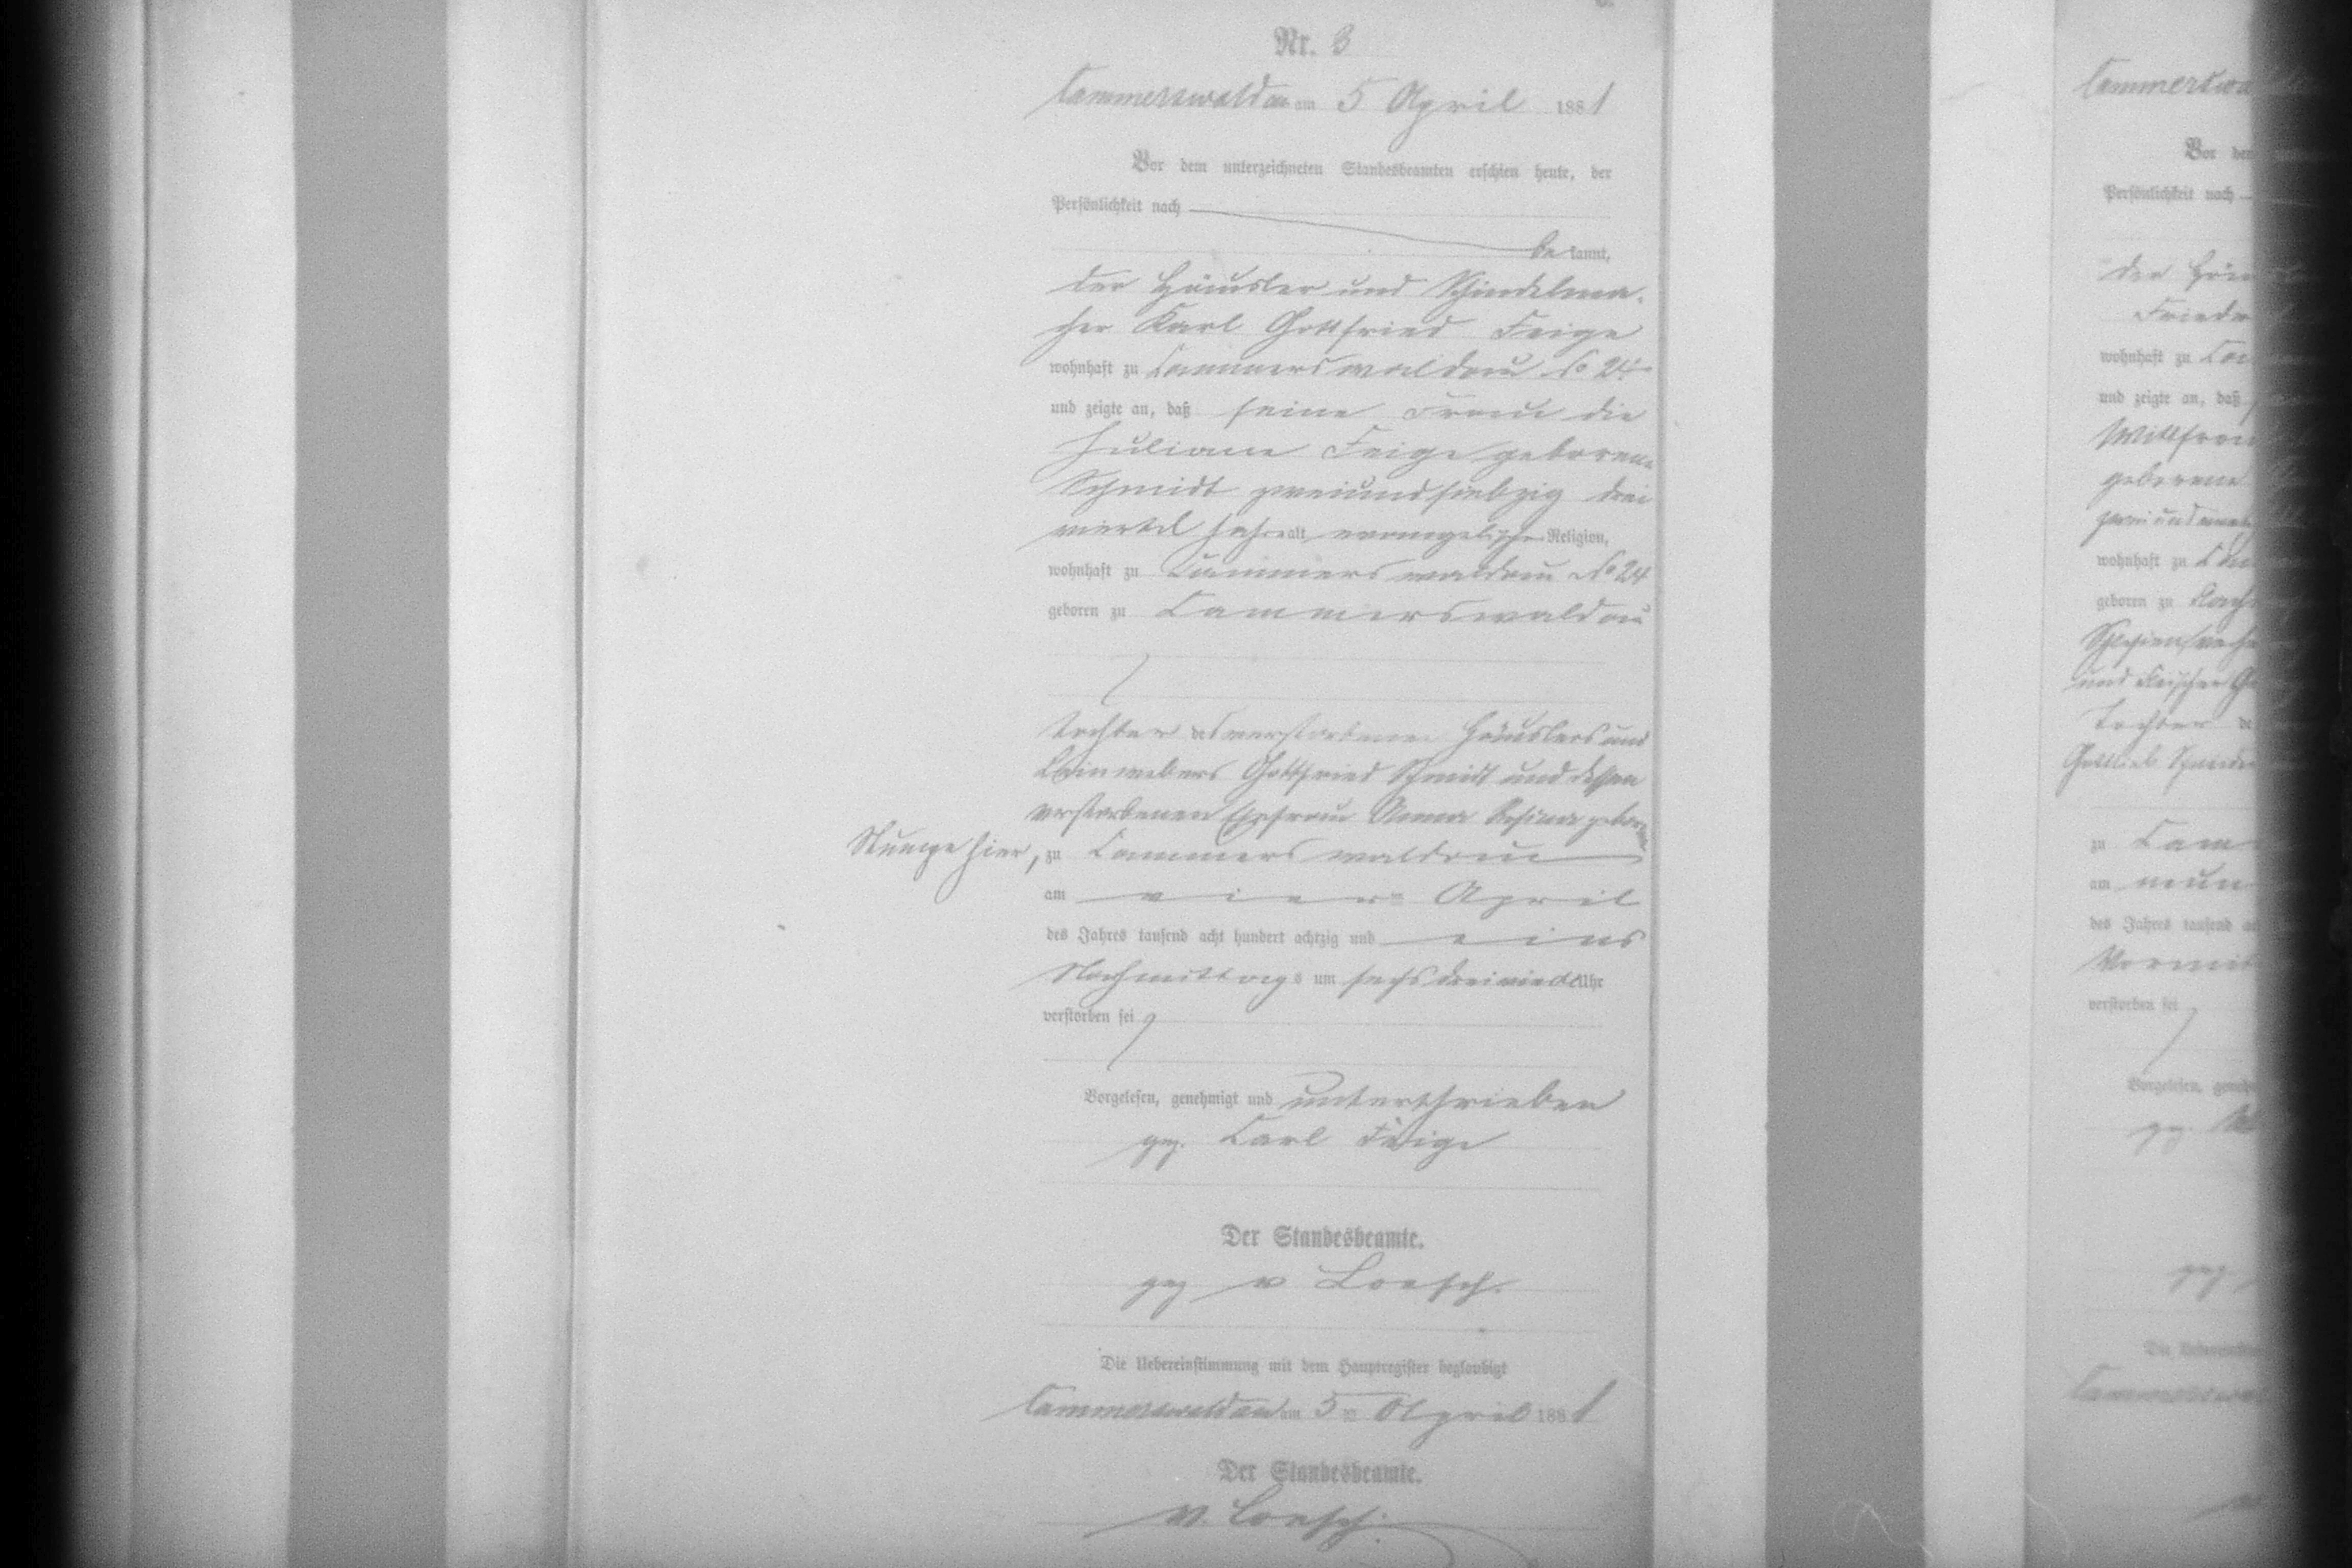 Nr. 8
Cammerswaldau am 5 April 1881
Vor dem unterzeichneten Standesbeamten erschien heute, der
Persönlichkeit nach
bekannt,
der Häusler und Schindelma-
cher Karl Gottfried Feige
wohnhaft zu Cammerswaldau No 24
und zeigte an, daß seine Frau die
Juliane Feige geborene
Schmidt zweiundsiebzig drei
viertel Jahre alt, evangelischer Religion,
wohnhaft zu Cammerswaldau No 24
geboren zu Cammerswaldau
Tochter des verstorbenen Häuslers und
Leinwebers Gottfried Schmidt und dessen
verstorbenen Ehefrau Anna Rosina geborene
Stumpe hier, zu Cammerswaldau
am vier April
des Jahres tausend acht hundert achtzig und eins
Nachmittags um sechs dreiviertel Uhr
verstorben sei
Vorgelesen, genehmigt und unterschrieben
gez. Carl Feige
Der Standesbeamte.
gez v Loesch.
Die Uebereinstimmung mit dem Hauptregister beglaubigt
Cammerswaldau am 5 ten April 1881
Der Standesbeamte.
v. Loesch.
Vor dem
Persönlichkeit nach
wohnhaft zu
und zeigte an, daß
geborene
wohnhaft zu
geboren zu
und
Tochter de
Gottlieb
zu Cam
am neun
des Jahres tausend
verstorben sei
Vorgelesen,
gez.
gez